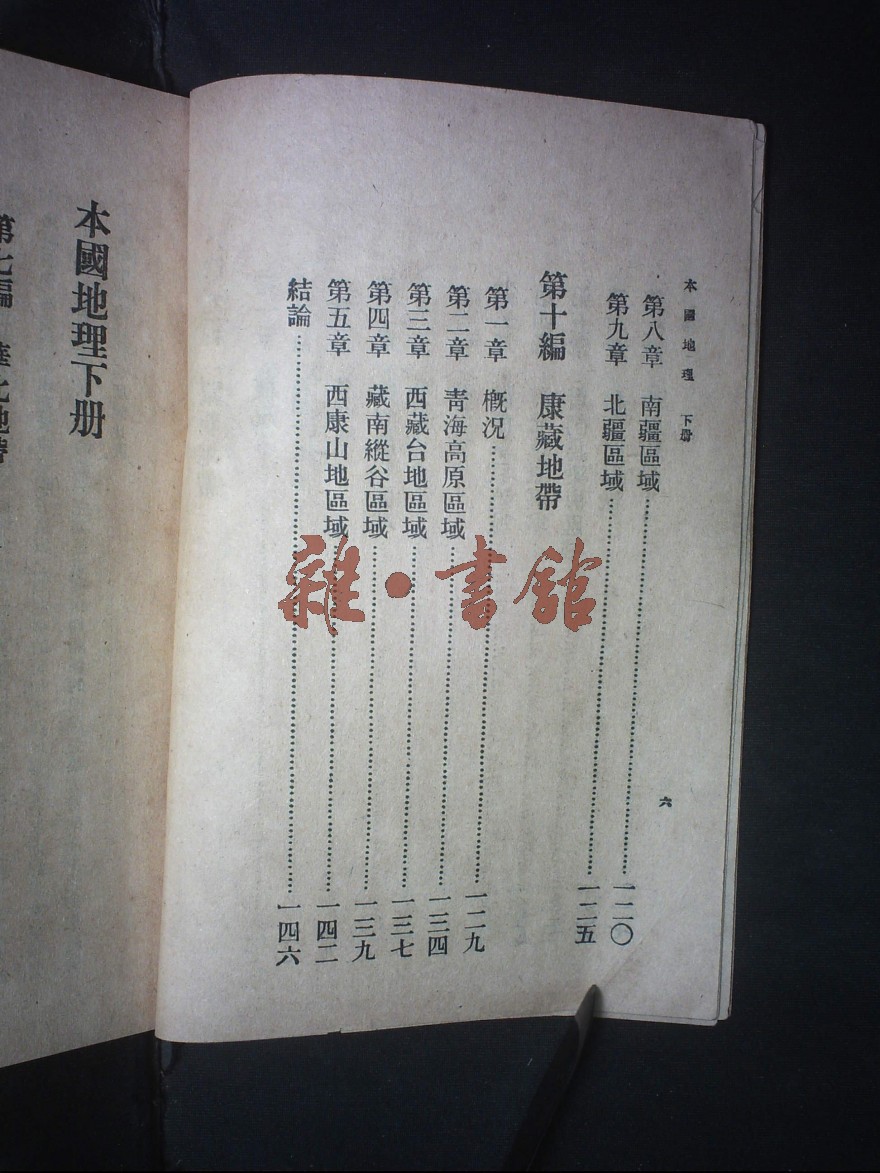 本國地理 下册
六
第八章 南疆區域……一二〇
第九章 北疆區域……一二五
第十編 康藏地帶
第一章 概況……一二九
第二章 靑海高原區域……一三四
第三章 西藏台地區域……一三七
第四章 藏南縱谷區域……一三九
第五章 西康山地區域……一四二
結論……一四六
雜·書館
本國地理下册
第七編